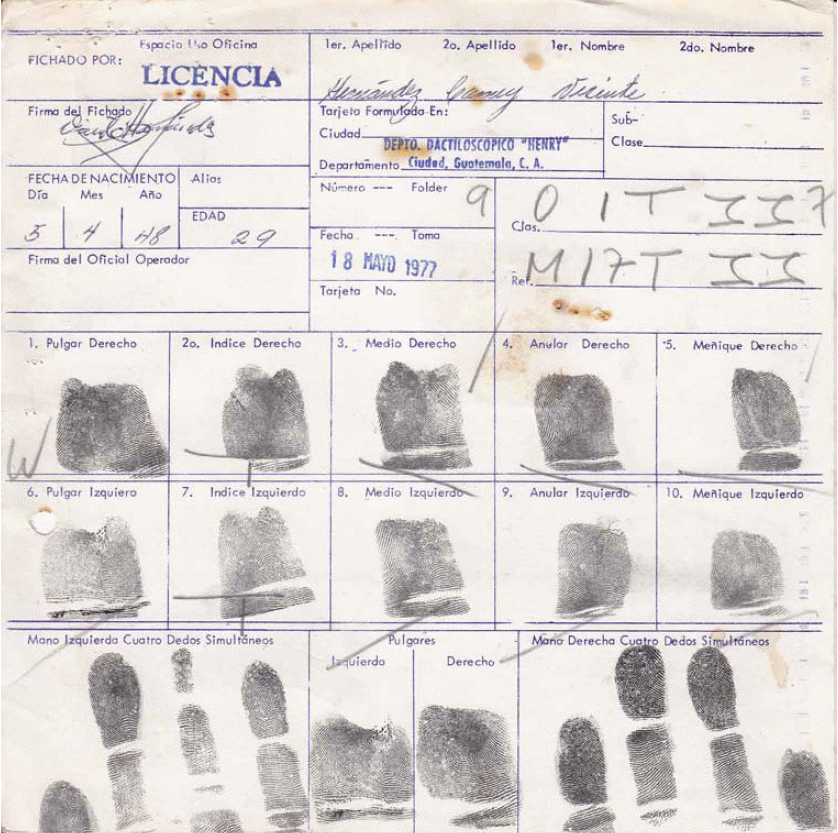 Espacio Uso Oficina
FICHADO POR:
LICENCIA
1er. Apellido 2o. Apellido 1er. Nombre 2do. Nombre
Hernández Vicente
Firma del Fichado
Tarjeta Formulada En:
Ciudad
DEPTO. DACTILOSCOPICO "HENRY"
Departamento Ciudad, Guatemala, C. A.
Sub-
Clase
FECHA DE NACIMIENTO
Día Mes Año
5 4 48
Alias
EDAD
29
Número --- Folder
9
Clas. O 1 T II 7
Fecha --- Toma
18 MAYO 1977
Ref. M 17 T II
Firma del Oficial Operador
Tarjeta No.
1. Pulgar Derecho 2o. Indice Derecho 3. Medio Derecho 4. Anular Derecho 5. Meñique Derecho
W
6. Pulgar Izquiero 7. Indice Izquierdo 8. Medio Izquierdo 9. Anular Izquierdo 10. Meñique Izquierdo
Mano Izquierda Cuatro Dedos Simultáneos Pulgares Mano Derecha Cuatro Dedos Simultáneos
Izquierdo Derecho